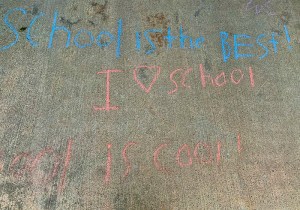 School is the BEST!
I ♡ school
is cool!